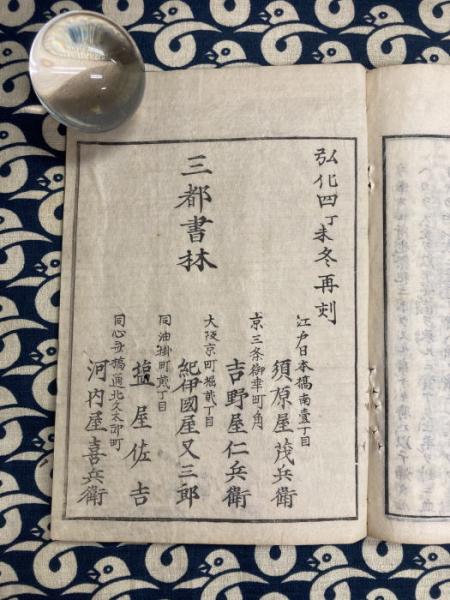 弘化四丁未冬再刻
三都書林
江戸日本橋南壹丁目
須原屋茂兵衛
京三条御幸町角
吉野屋仁兵衛
大阪京町堀貳丁目
紀伊國屋又三郎
同油掛町貳丁目
塩屋佐吉
同心斎橋通北久太郎町
河内屋喜兵衛